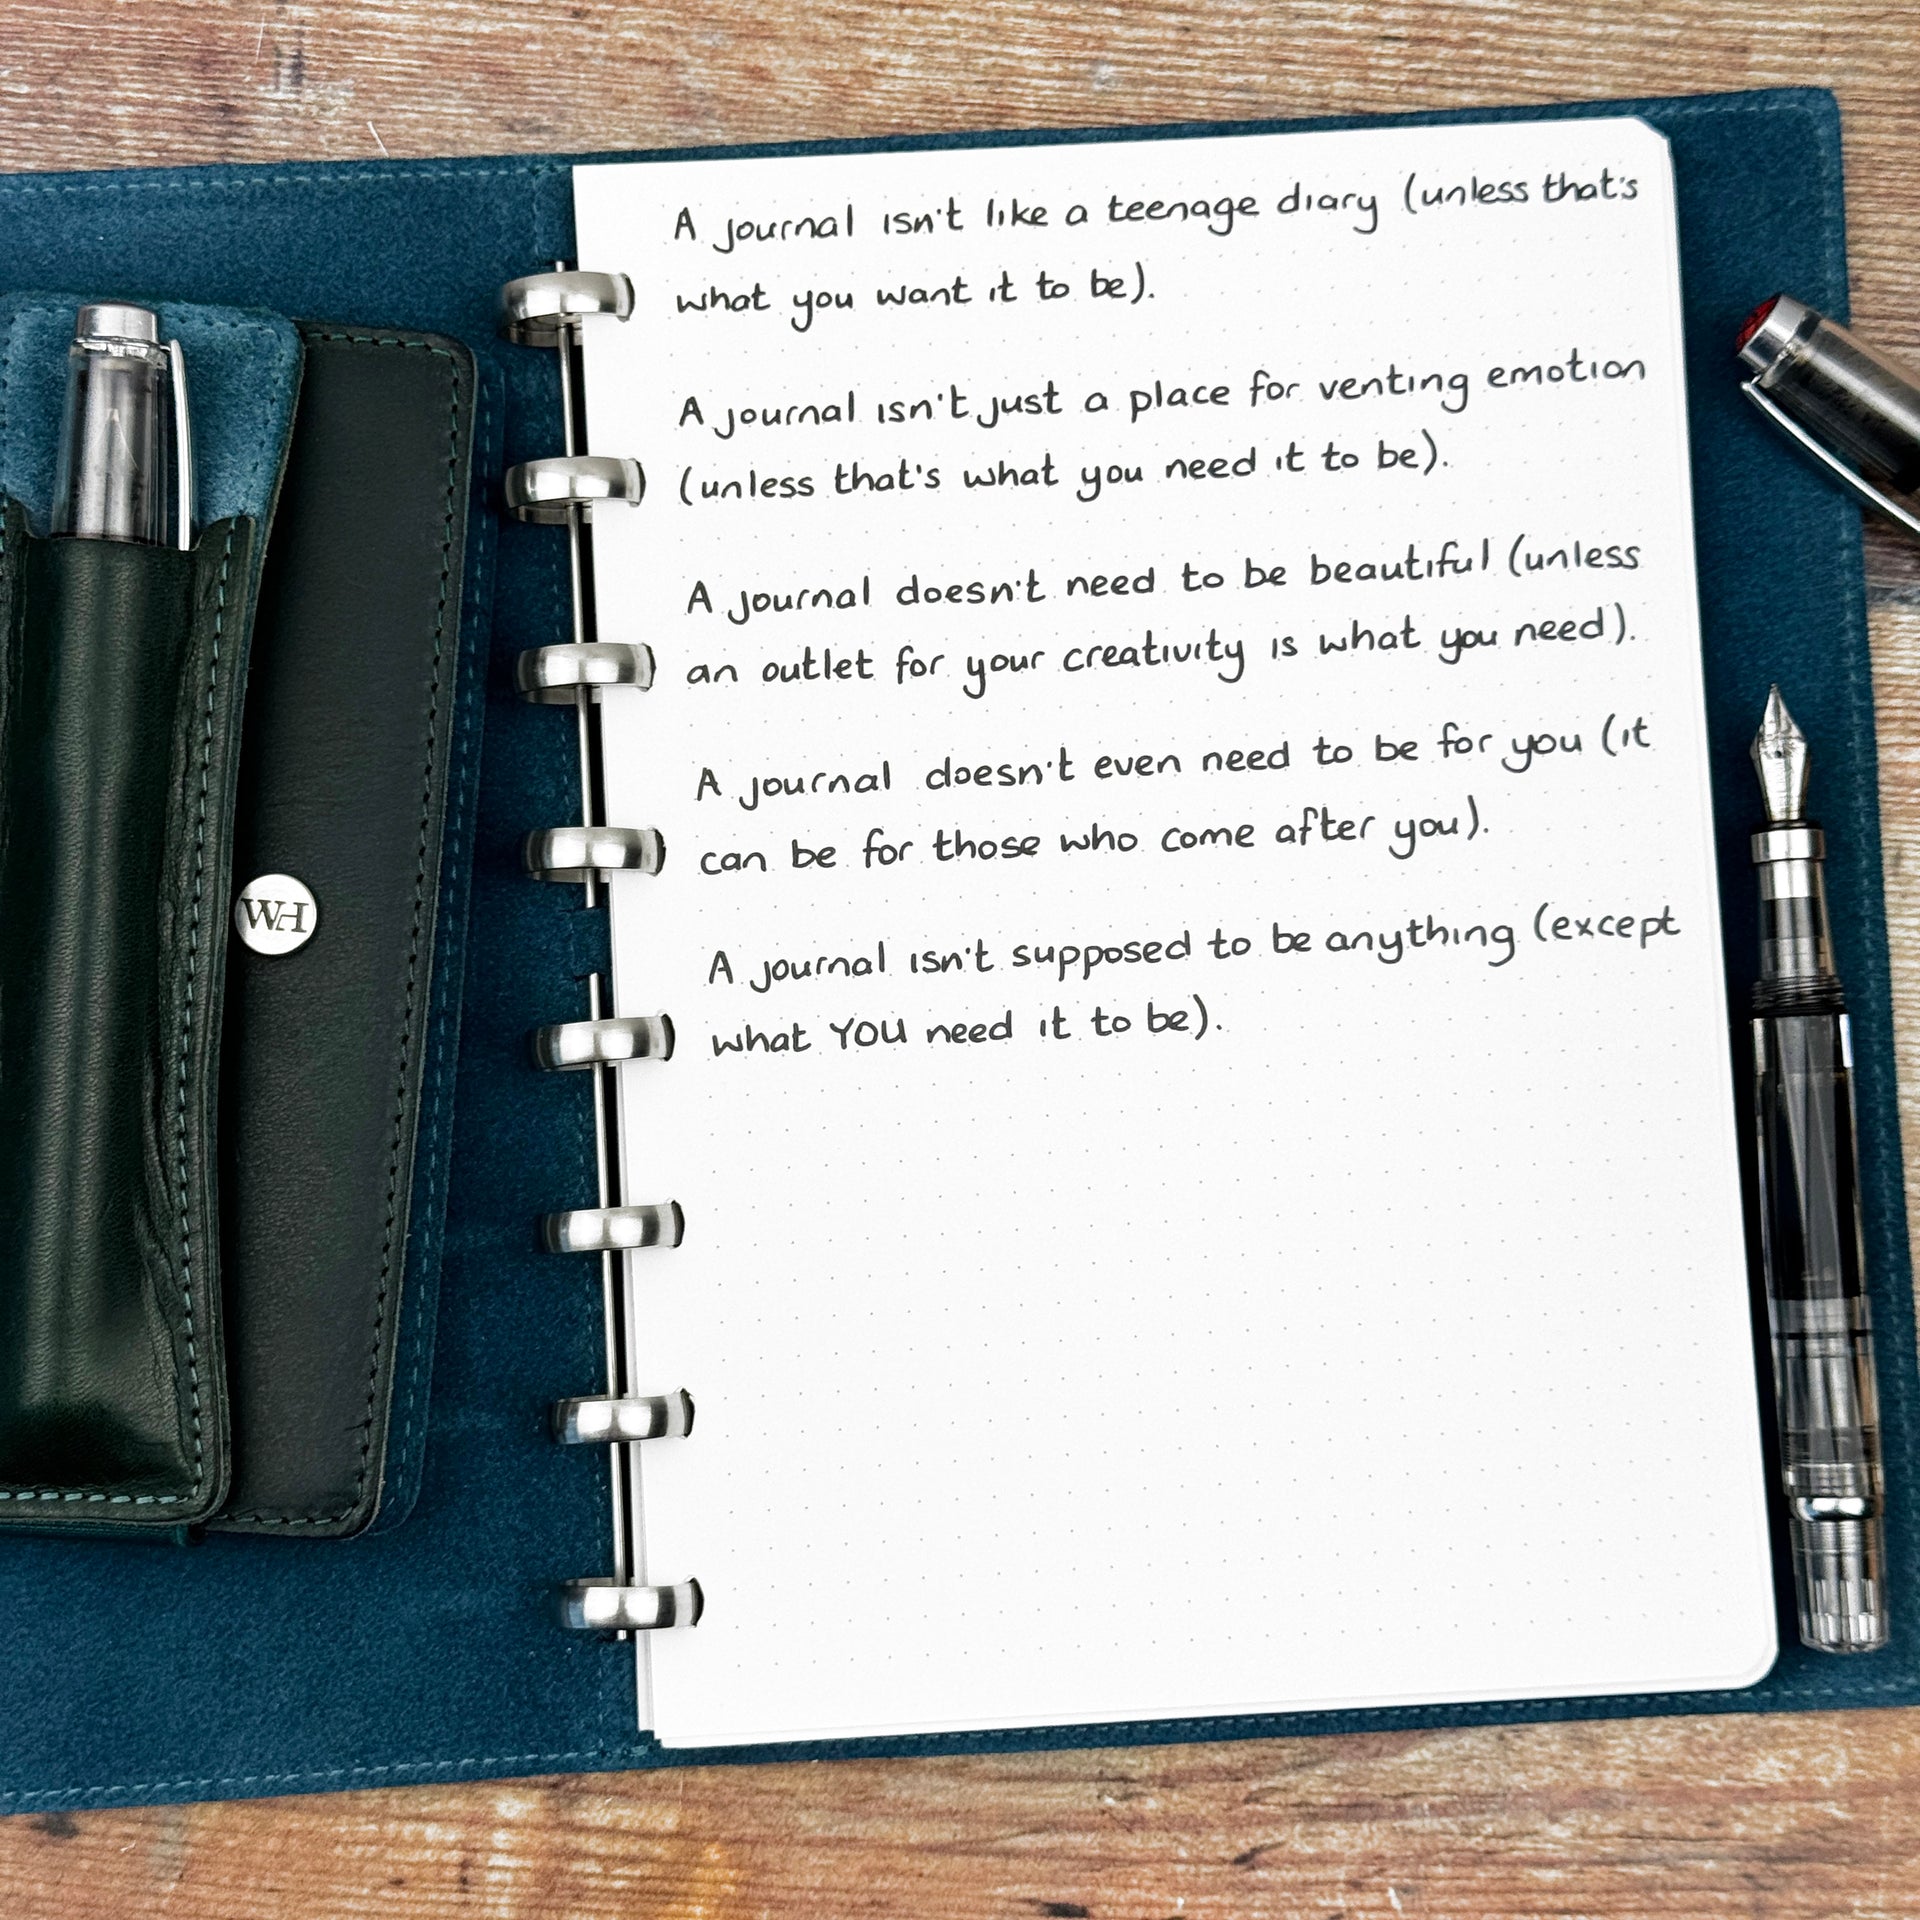 A journal isn't like a teenage diary (unless that's
what you want it to be).
A journal isn't just a place for venting emotion
(unless that's what you need it to be).
A journal doesn't need to be beautiful (unless
an outlet for your creativity is what you need).
A journal doesn't even need to be for you (it
can be for those who come after you).
A journal isn't supposed to be anything (except
what YOU need it to be).
WH